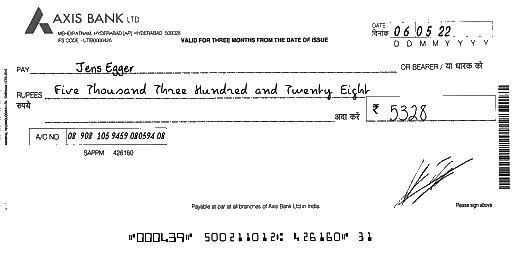 AXIS BANK LTD
MEHDIPATNAM, HYDERABAD [AP] HYDERABAD 500028
IFS CODE - UTIB0000426
VALID FOR THREE MONTHS FROM THE DATE OF ISSUE
DATE
दिनांक 06 05 22
D D M M Y Y Y Y
PAY Jens Egger OR BEARER / या धारक को
RUPEES Five Thousand Three Hundred and Twenty Eight
रुपये अदा करें ₹ 5328
A/C NO 08 908 105 9469 080594 08
SAPPM 426160
Payable at par at all branches of Axis Bank Ltd in India.
Please sign above
"000439" 500211012: 426160" 31